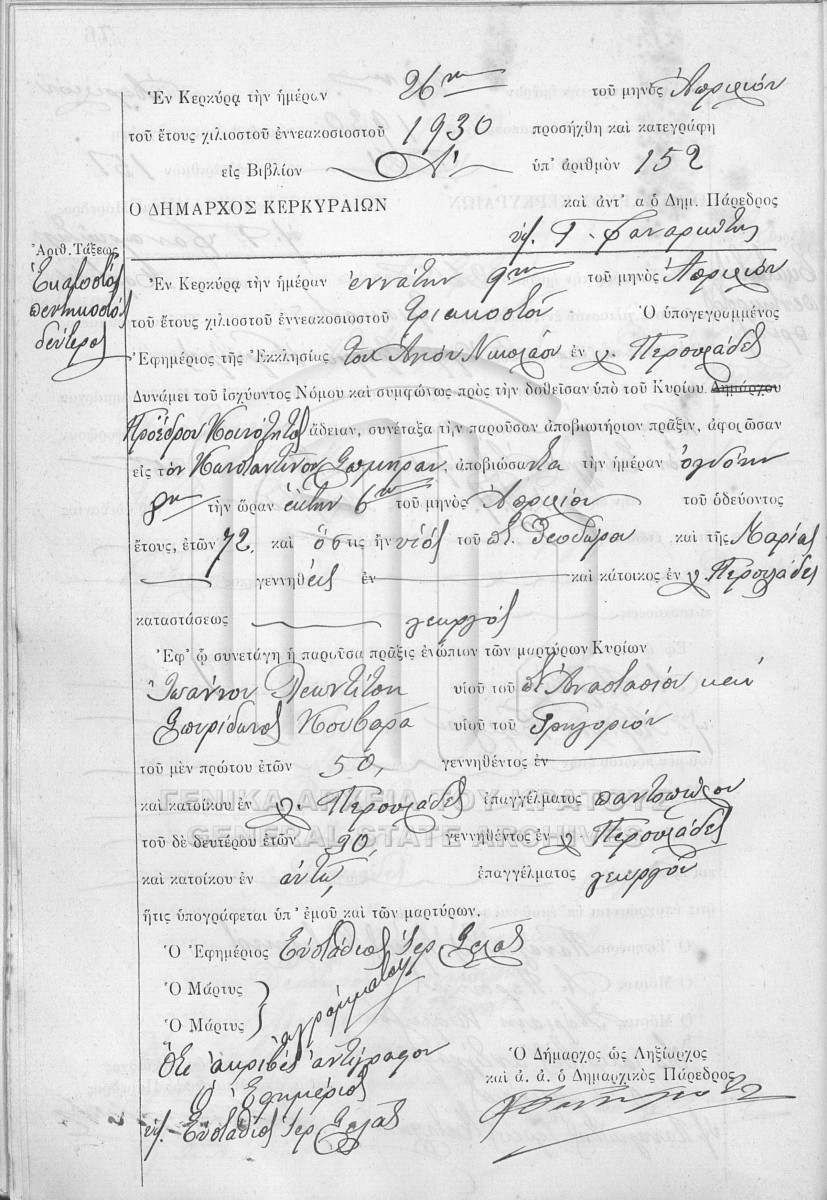 Ἐν Κερκύρᾳ τὴν ἡμέραν 26ην τοῦ μηνὸς Ἀπριλίου
τοῦ ἔτους χιλιοστοῦ ἐννεακοσιοστοῦ 1930 προσήχθη καὶ κατεγράφη
εἰς Βιβλίον Α' ὑπ' ἀριθμὸν 152
Ο ΔΗΜΑΡΧΟΣ ΚΕΡΚΥΡΑΙΩΝ καὶ ἀντ' α ὁ Δημ. Πάρεδρος
υπ. Γ. Φαναριώτης
Ἀριθ. Τάξεως
Ἑκατοστός
πεντηκοστός
δεύτερος
Ἐν Κερκύρᾳ τὴν ἡμέραν ἐννάτην 9ην τοῦ μηνὸς Ἀπριλίου
τοῦ ἔτους χιλιοστοῦ ἐννεακοσιοστοῦ τριακοστοῦ Ὁ ὑπογεγραμμένος
Ἐφημέριος τῆς Ἐκκλησίας του Ἁγίου Νικολάου ἐν χ. Περουλάδες
Δυνάμει τοῦ ἰσχύοντος Νόμου καὶ συμφώνως πρὸς τὴν δοθεῖσαν ὑπὸ τοῦ Κυρίου Δημάρχου
Προέδρου Κοινότητος ἄδειαν, συνέταξα τὴν παροῦσαν ἀποβιωτήριον πρᾶξιν, ἀφορῶσαν
εἰς τὸν Κωνσταντῖνον ἀποβιώσαντα τὴν ἡμέραν ὀγδόην
8ην τὴν ὥραν ἕκτην 6ην τοῦ μηνὸς Ἀπριλίου τοῦ ὁδεύοντος
ἔτους, ἐτῶν 72, καὶ ὅστις ἦν υἱὸς τοῦ π. Θεοδώρου καὶ τῆς Μαρίας
γεννηθεὶς ἐν καὶ κάτοικος ἐν χ. Περουλάδες
καταστάσεως γεωργός
Ἐφ' ᾧ συνετάγη ἡ παροῦσα πρᾶξις ἐνώπιον τῶν μαρτύρων Κυρίων
Ἰωάννου Λεωντίτου υἱοῦ τοῦ π. Ἀναστασίου καί
Σπυρίδωνος Κουβαρᾶ υἱοῦ τοῦ Γρηγορίου
τοῦ μὲν πρώτου ἐτῶν 50, γεννηθέντος ἐν
καὶ κατοίκου ἐν χ. Περουλάδες ἐπαγγέλματος παντοπώλου
ΓΕΝΙΚΑ ΑΡΧΕΙΑ ΤΟΥ ΚΡΑΤΟΥΣ
GENERAL STATE ARCHIVES
τοῦ δὲ δευτέρου ἐτῶν 30, γεννηθέντος ἐν χ. Περουλάδες
καὶ κατοίκου ἐν αὐτῷ, ἐπαγγέλματος γεωργοῦ
ἥτις ὑπογράφεται ὑπ' ἐμοῦ καὶ τῶν μαρτύρων.
Ὁ Ἐφημέριος Εὐστάθιος Ἱερ.
Ὁ Μάρτυς
Ὁ Μάρτυς
ἀγράμματοι
Ὅτι ἀκριβὲς ἀντίγραφον
Ὁ Ἐφημέριος
υπ. Εὐστάθιος Ἱερ.
Ὁ Δήμαρχος ὡς Ληξίαρχος
καὶ ἀ. ἀ. ὁ Δημαρχικὸς Πάρεδρος